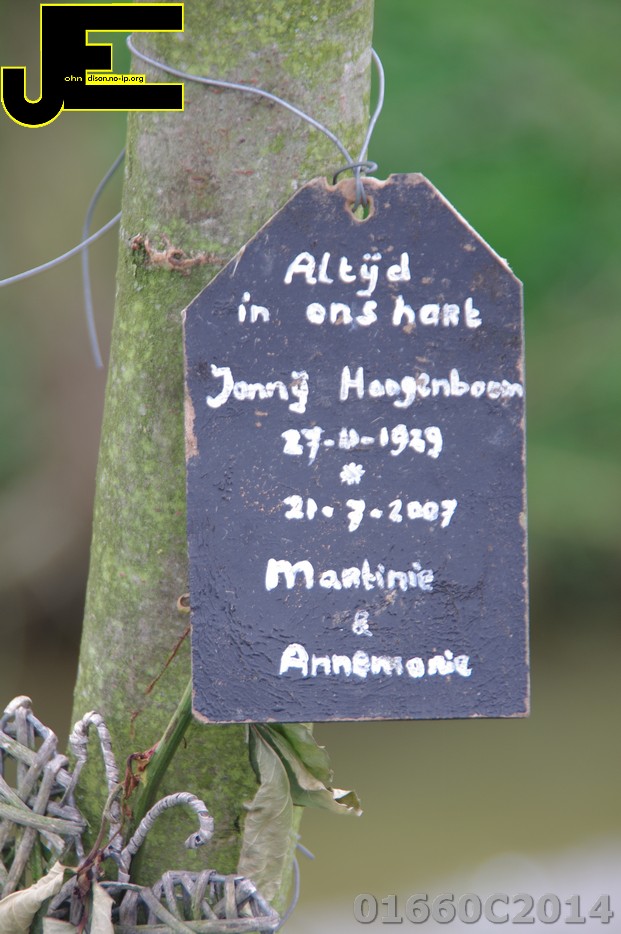 JE
ohn
dison.no-ip.org
Altijd
in ons hart
Jonnij Hoogenboom
27-11-1929
*
21-7-2007
Martinie
&
Annemarie
01660C2014